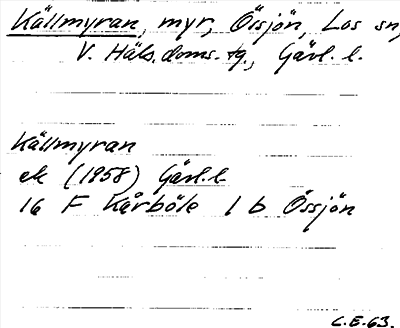 Källmyran, myr, Össjön, Los sn,
V. Häls. doms. tg., Gävl. l.
Källmyran
ek (1958) Gävl. l.
16 F Kårböle 1 b Össjön
C.E.63.